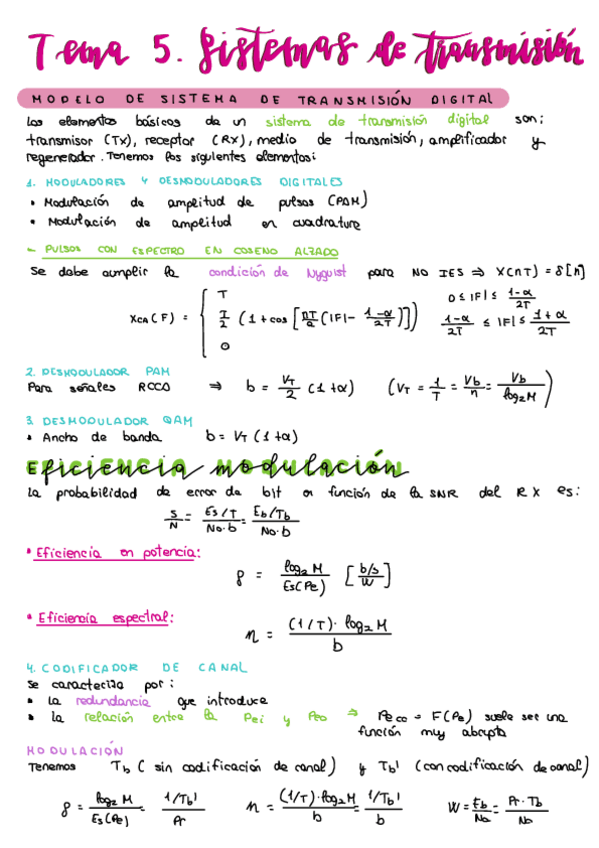 Tema 5. Sistemas de transmisión
MODELO DE SISTEMA DE TRANSMISIÓN DIGITAL
Los elementos básicos de un sistema de transmisión digital son:
transmisor (Tx), receptor (Rx), medio de transmisión, amplificador y
regenerador. Tenemos los siguientes elementos:
1. MODULADORES Y DESMODULADORES DIGITALES
• Modulación de amplitud de pulsos (PAM)
• Modulación de amplitud en cuadratura
- PULSOS CON ESPECTRO EN COSENO ALZADO
Se debe cumplir la condición de Nyquist para NO IES ⇒ X(nT) = δ[n]
XCA(F) = { T    0 ≤ |F| ≤ (1-α)/2T
T/2 (1 + cos [πT/α (|F| - (1-α)/2T)])    (1-α)/2T ≤ |F| ≤ (1+α)/2T
0
2. DESMODULADOR PAM
Para señales RCCO ⇒ b = VT/2 (1+α)    (VT = 1/T = Vb/n = Vb/log2M)
3. DESMODULADOR QAM
• Ancho de banda    b = VT (1+α)
Eficiencia modulación
La probabilidad de error de bit en función de la SNR del RX es:
S/N = (Es/T)/(No·b) = (Eb/Tb)/(No·b)
• Eficiencia en potencia:
ρ = log2 M / Es(Pe) [(b/s)/W]
• Eficiencia espectral:
n = (1/T)· log2 M / b
4. CODIFICADOR DE CANAL
Se caracteriza por:
• La redundancia que introduce
• La relación entre la Pei y Peo ⇒ Pe CO = F(Pe) suele ser una
función muy abrupta
MODULACIÓN
Tenemos Tb (sin codificación de canal) y Tb' (con codificación de canal)
ρ = log2 M / Es(Pe) = (1/Tb') / Pr    n = (1/T)·log2 M / b = (1/Tb') / b    W = Eb/No = Pr·Tb/No